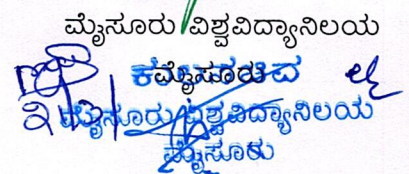 ಮೈಸೂರು ವಿಶ್ವವಿದ್ಯಾನಿಲಯ
ಮೈಸೂರು
ಮೈಸೂರು ವಿಶ್ವವಿದ್ಯಾನಿಲಯ
ಮೈಸೂರು